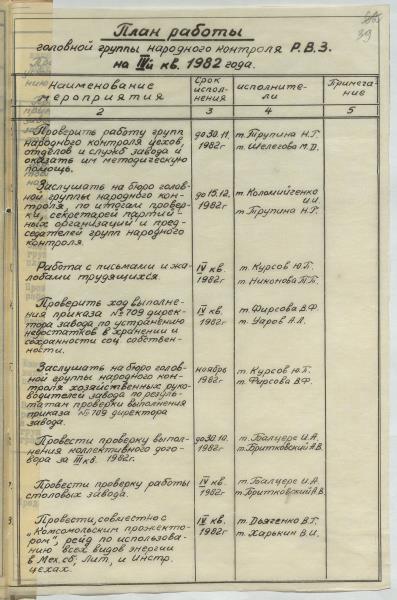 39
План работы
головной группы народного контроля Р.В.З.
на IVй кв. 1982 года.
Наименование мероприятия
Срок исполнения
исполнители
Примечание
2
3
4
5
Проверить работу групп
народного контроля цехов,
отделов и служб завода и
оказать им методическую
помощь.
до 30.11.
1982г
т. Трупина Н.Г.
т. Шелегова М.D.
Заслушать на бюро голов-
ной группы народного кон-
троля, по итогам провер-
ки, секретарей партий-
ных организаций и пред-
седателей групп народного
контроля.
до 15.12.
1982г
т. Коломийченко
И.И.
т. Трупина Н.Г.
Работа с письмами и жа-
лобами трудящихся.
IV кв.
1982г
т. Курсов Ю.Г.
т. Никонова П.П.
Проверить ход выполне-
ния приказа №709 дирек-
тора завода по устранению
недостатков в хранении и
сохранности соц. собствен-
ности.
IV кв.
1982г
т. Фирсова В.Ф.
т. Уаров А.Л.
Заслушать на бюро голов-
ной группы народного кон-
троля хозяйственных руко-
водителей завода по резуль-
татам проверки выполнения
приказа №709 директора
завода.
ноябрь
1982г
т. Курсов Ю.Г.
т. Фирсова В.Ф.
Провести проверку выпол-
нения коллективного дого-
вора за III кв. 1982г.
до 30.10.
1982г
т. Балцере И.А.
т. Бритковский А.В.
Провести проверку работы
столовых завода.
IV кв.
1982г
т. Балцере И.А.
т. Бритковский А.В.
Провести, совместно с
„Комсомольским прожекто-
ром", рейд по использова-
нию всех видов энергии
в Мех.сб, Лит. и Инстр.
цехах.
IV кв.
1982г
т. Дьяченко В.Г.
т. Харькин В.И.